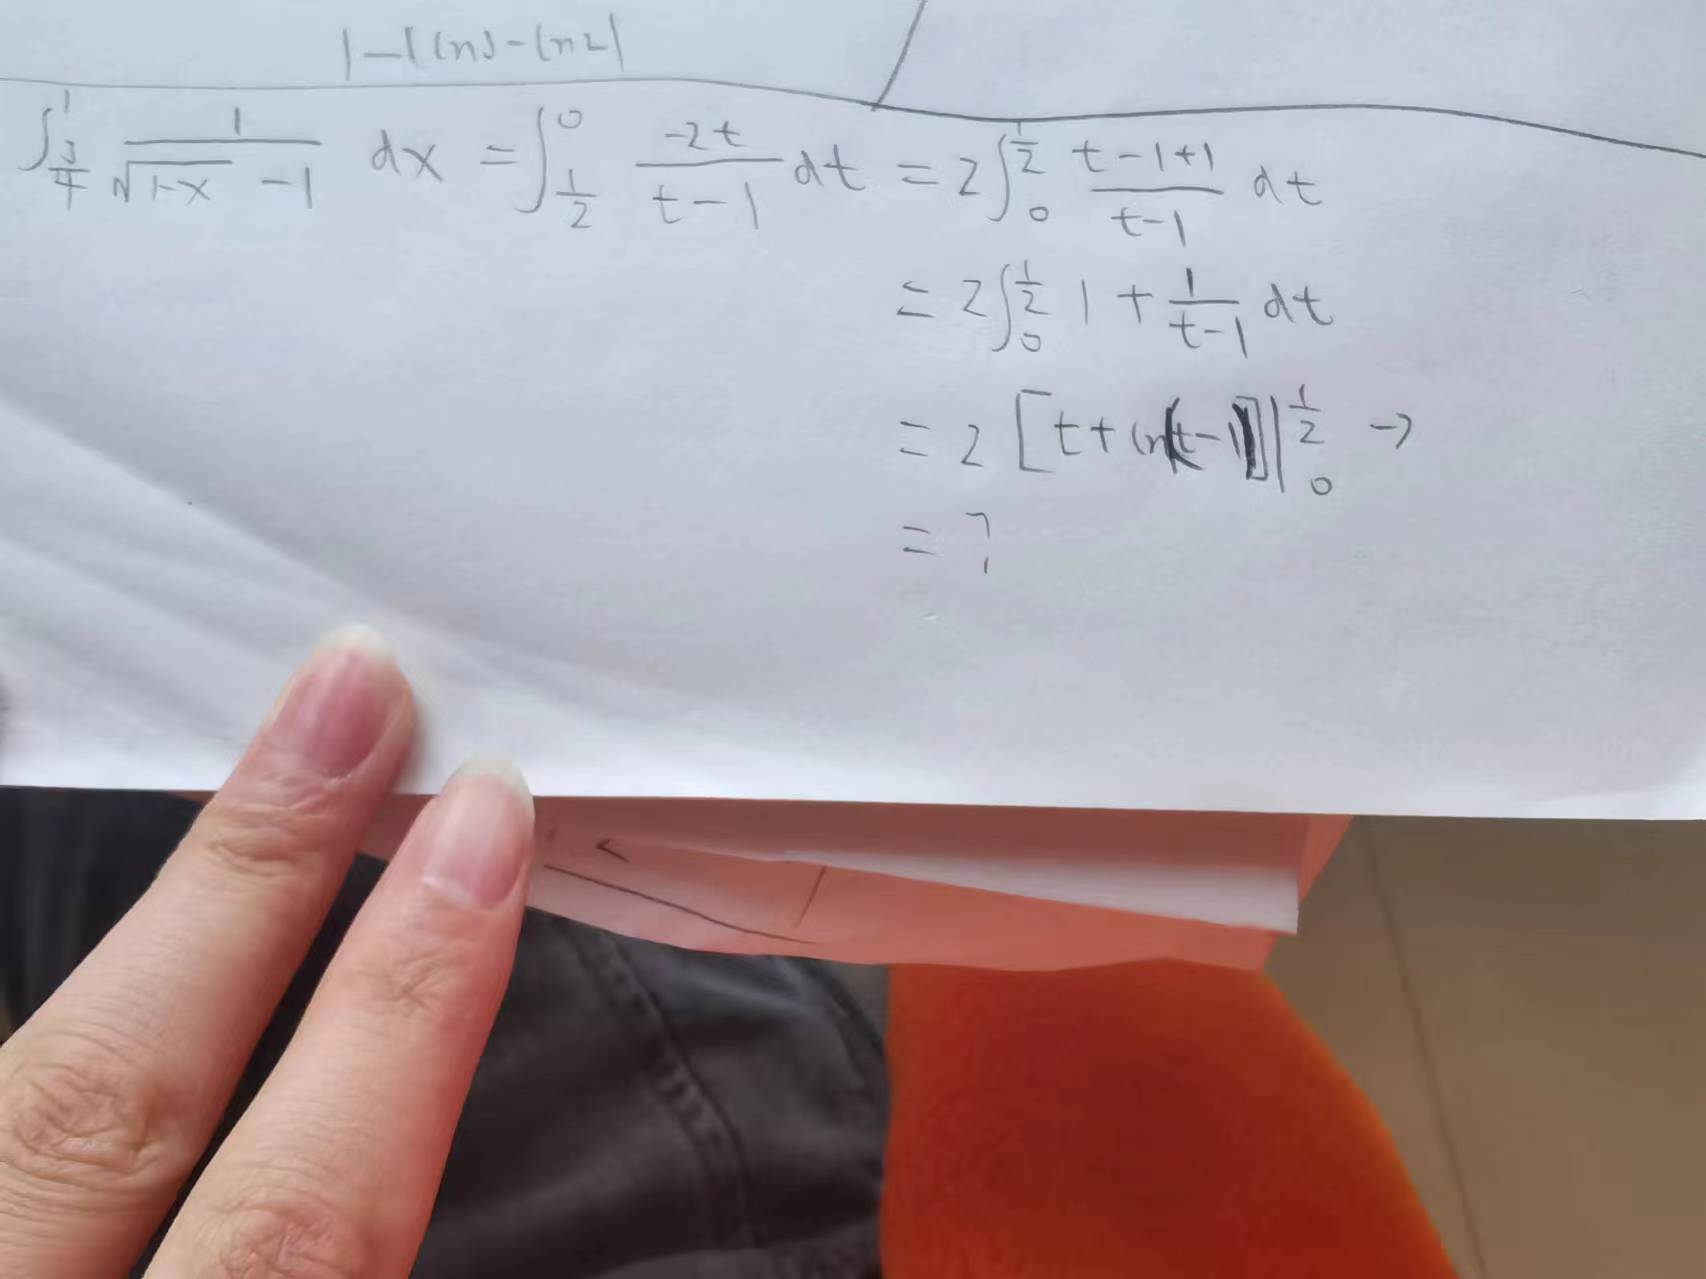 1-[ln1-ln2]
∫_{3/4}^{1} 1/(√(1-x) -1) dx = ∫_{1/2}^{0} -2t/(t-1) dt = 2∫_{0}^{1/2} (t-1+1)/(t-1) dt
= 2∫_{0}^{1/2} 1 + 1/(t-1) dt
= 2 [t+ln(t-1)]|_{0}^{1/2} →
= ?